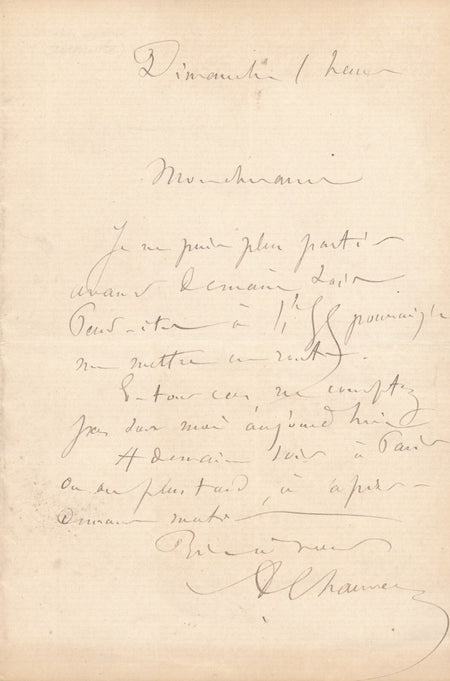 Dimanche 1 heure
Mon cher ami
Je ne puis plus partir
avant demain soir
Peut-être à 1h 55 pourrai-je
me mettre en route.
En tous cas ne comptez
pas sur moi aujourd'hui
A demain soir à Paris
ou au plus tard, à après-
demain matin
Bien à vous